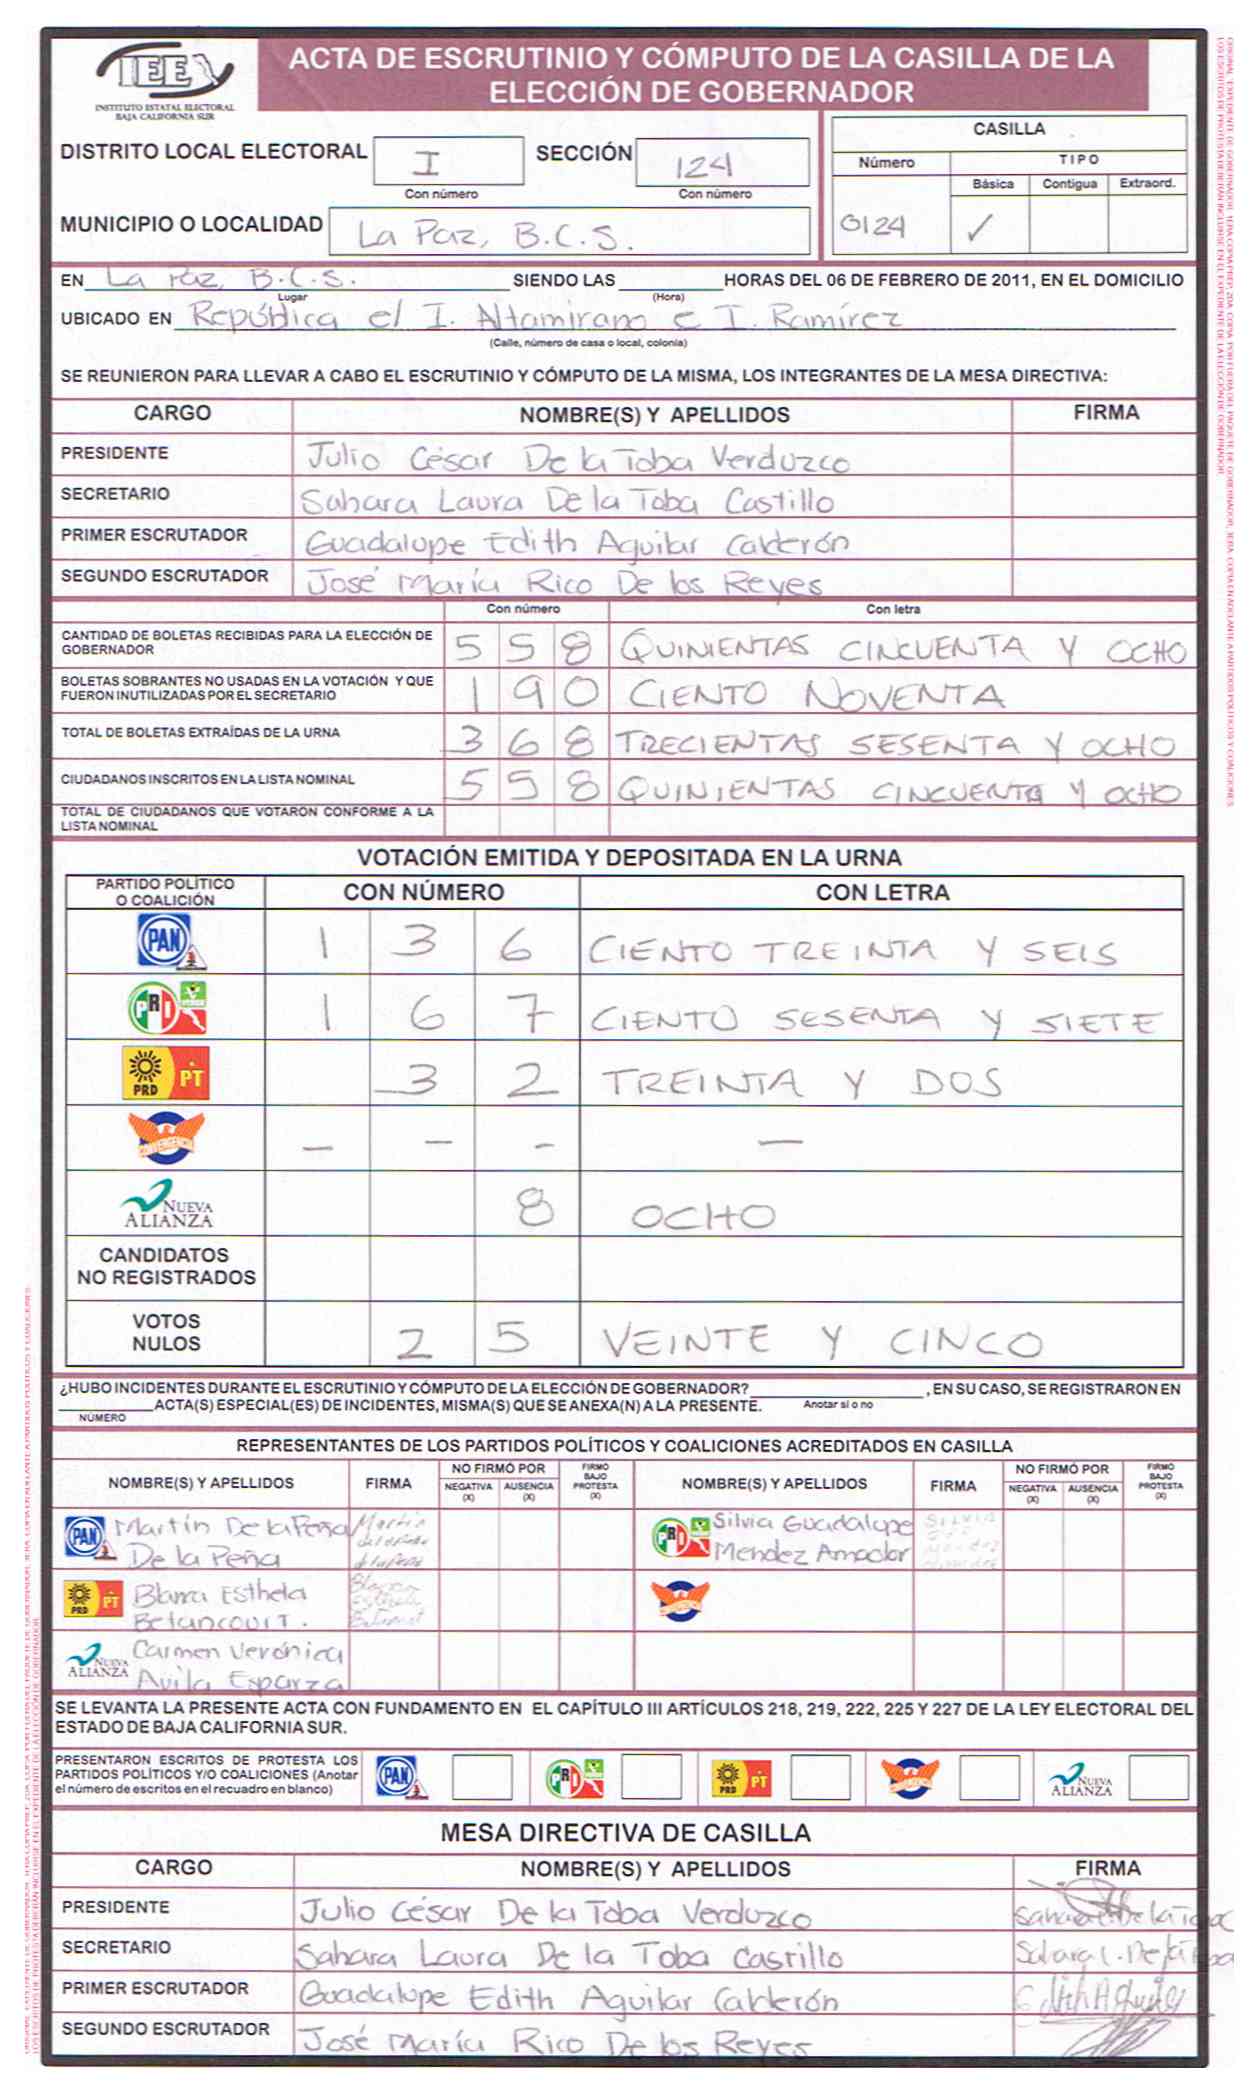 IEE
INSTITUTO ESTATAL ELECTORAL
BAJA CALIFORNIA SUR
ACTA DE ESCRUTINIO Y CÓMPUTO DE LA CASILLA DE LA
ELECCIÓN DE GOBERNADOR
DISTRITO LOCAL ELECTORAL I SECCIÓN 124
Con número Con número
MUNICIPIO O LOCALIDAD La Paz, B.C.S.
CASILLA
Número TIPO
Básica Contigua Extraord.
0124 ✓
EN La Paz, B.C.S. SIENDO LAS HORAS DEL 06 DE FEBRERO DE 2011, EN EL DOMICILIO
Lugar (Hora)
UBICADO EN República e/ I. Altamirano e I. Ramírez
(Calle, número de casa o local, colonia)
SE REUNIERON PARA LLEVAR A CABO EL ESCRUTINIO Y CÓMPUTO DE LA MISMA, LOS INTEGRANTES DE LA MESA DIRECTIVA:
CARGO NOMBRE(S) Y APELLIDOS FIRMA
PRESIDENTE Julio César De la Toba Verduzco
SECRETARIO Sahara Laura De la Toba Castillo
PRIMER ESCRUTADOR Guadalupe Edith Aguilar Calderón
SEGUNDO ESCRUTADOR José María Rico De los Reyes
Con número Con letra
CANTIDAD DE BOLETAS RECIBIDAS PARA LA ELECCIÓN DE
GOBERNADOR 5 5 8 QUINIENTAS CINCUENTA Y OCHO
BOLETAS SOBRANTES NO USADAS EN LA VOTACIÓN Y QUE
FUERON INUTILIZADAS POR EL SECRETARIO 1 9 0 CIENTO NOVENTA
TOTAL DE BOLETAS EXTRAÍDAS DE LA URNA 3 6 8 TRECIENTAS SESENTA Y OCHO
CIUDADANOS INSCRITOS EN LA LISTA NOMINAL 5 5 8 QUINIENTAS CINCUENTA Y OCHO
TOTAL DE CIUDADANOS QUE VOTARON CONFORME A LA
LISTA NOMINAL
VOTACIÓN EMITIDA Y DEPOSITADA EN LA URNA
PARTIDO POLÍTICO
O COALICIÓN CON NÚMERO CON LETRA
PAN 1 3 6 CIENTO TREINTA Y SEIS
PRI VERDE 1 6 7 CIENTO SESENTA Y SIETE
PRD PT 3 2 TREINTA Y DOS
CONVERGENCIA – – – –
NUEVA ALIANZA 8 OCHO
CANDIDATOS
NO REGISTRADOS
VOTOS
NULOS 2 5 VEINTE Y CINCO
¿HUBO INCIDENTES DURANTE EL ESCRUTINIO Y CÓMPUTO DE LA ELECCIÓN DE GOBERNADOR? , EN SU CASO, SE REGISTRARON EN
ACTA(S) ESPECIAL(ES) DE INCIDENTES, MISMA(S) QUE SE ANEXA(N) A LA PRESENTE. Anotar si o no
NÚMERO
REPRESENTANTES DE LOS PARTIDOS POLÍTICOS Y COALICIONES ACREDITADOS EN CASILLA
NOMBRE(S) Y APELLIDOS FIRMA NO FIRMÓ POR NEGATIVA (X) AUSENCIA (X) FIRMÓ BAJO PROTESTA (X) NOMBRE(S) Y APELLIDOS FIRMA NO FIRMÓ POR NEGATIVA (X) AUSENCIA (X) FIRMÓ BAJO PROTESTA (X)
PAN Martín De la Peña
De la Peña
PRI Silvia Guadalupe
Mendez Amador
PRD PT Blanca Esthela
Betancourt.
CONVERGENCIA
NUEVA ALIANZA Carmen Verónica
Avila Esparza
SE LEVANTA LA PRESENTE ACTA CON FUNDAMENTO EN EL CAPÍTULO III ARTÍCULOS 218, 219, 222, 225 Y 227 DE LA LEY ELECTORAL DEL
ESTADO DE BAJA CALIFORNIA SUR.
PRESENTARON ESCRITOS DE PROTESTA LOS
PARTIDOS POLÍTICOS Y/O COALICIONES (Anotar
el número de escritos en el recuadro en blanco)
PAN PRI PRD PT CONVERGENCIA NUEVA ALIANZA
MESA DIRECTIVA DE CASILLA
CARGO NOMBRE(S) Y APELLIDOS FIRMA
PRESIDENTE Julio César De la Toba Verduzco
SECRETARIO Sahara Laura De la Toba Castillo Sahara L. De la Toba
PRIMER ESCRUTADOR Guadalupe Edith Aguilar Calderón
SEGUNDO ESCRUTADOR José María Rico De los Reyes